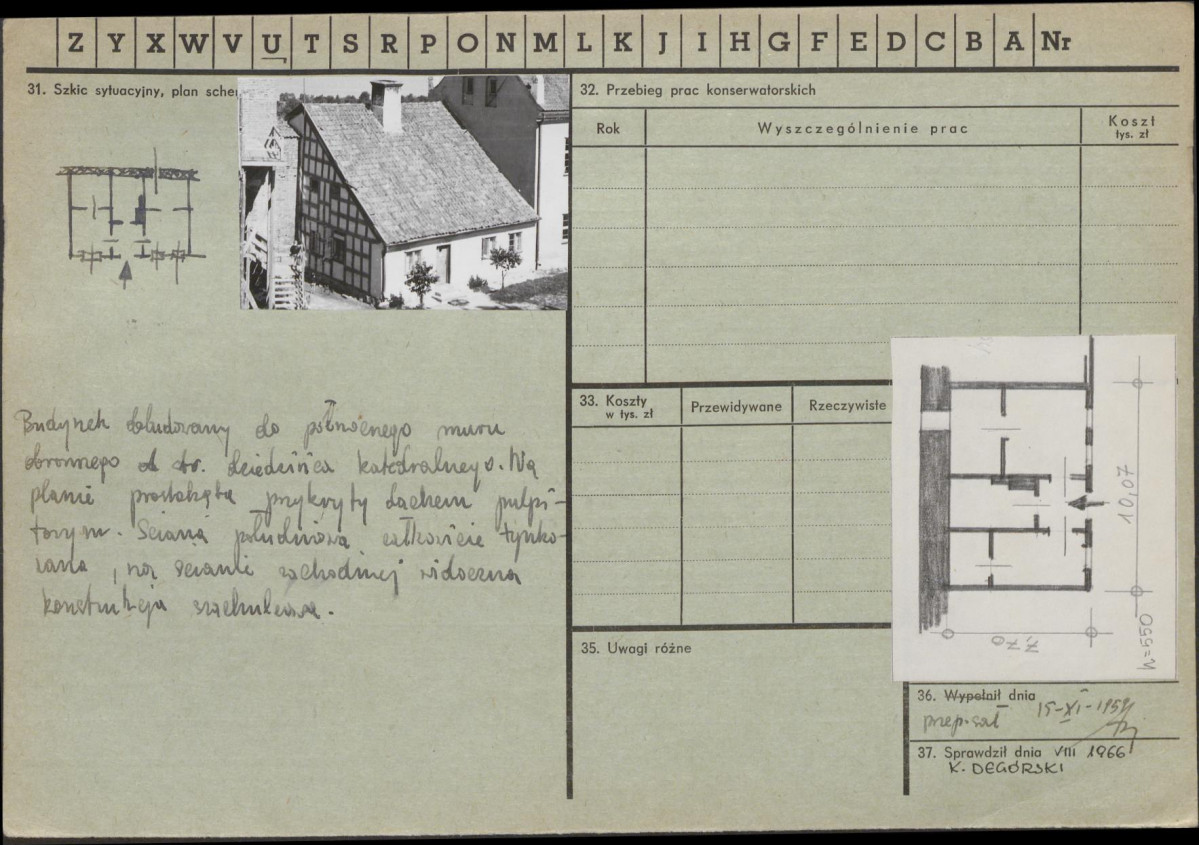 Z Y X W V U T S R P O N M L K J I H G F E D C B A Nr
31. Szkic sytuacyjny, plan schem
Budynek dobudowany do północnego muru
obronnego dziedzińca katedralnego. Na
planie prostokąta przykryty dachem pulpi-
towym. Ściana południowa całkowicie tynko-
wana, na ścianie zachodniej widoczna
konstrukcja szachulcowa.
32. Przebieg prac konserwatorskich
Rok
Wyszczególnienie prac
Koszt
tys. zł
33. Koszty
w tys. zł
Przewidywane
Rzeczywiste
10,07
7,70
h=550
35. Uwagi różne
36. Wypełnił dnia
przepisał 15-XI-1959
37. Sprawdził dnia VIII 1966
K. DEGÓRSKI